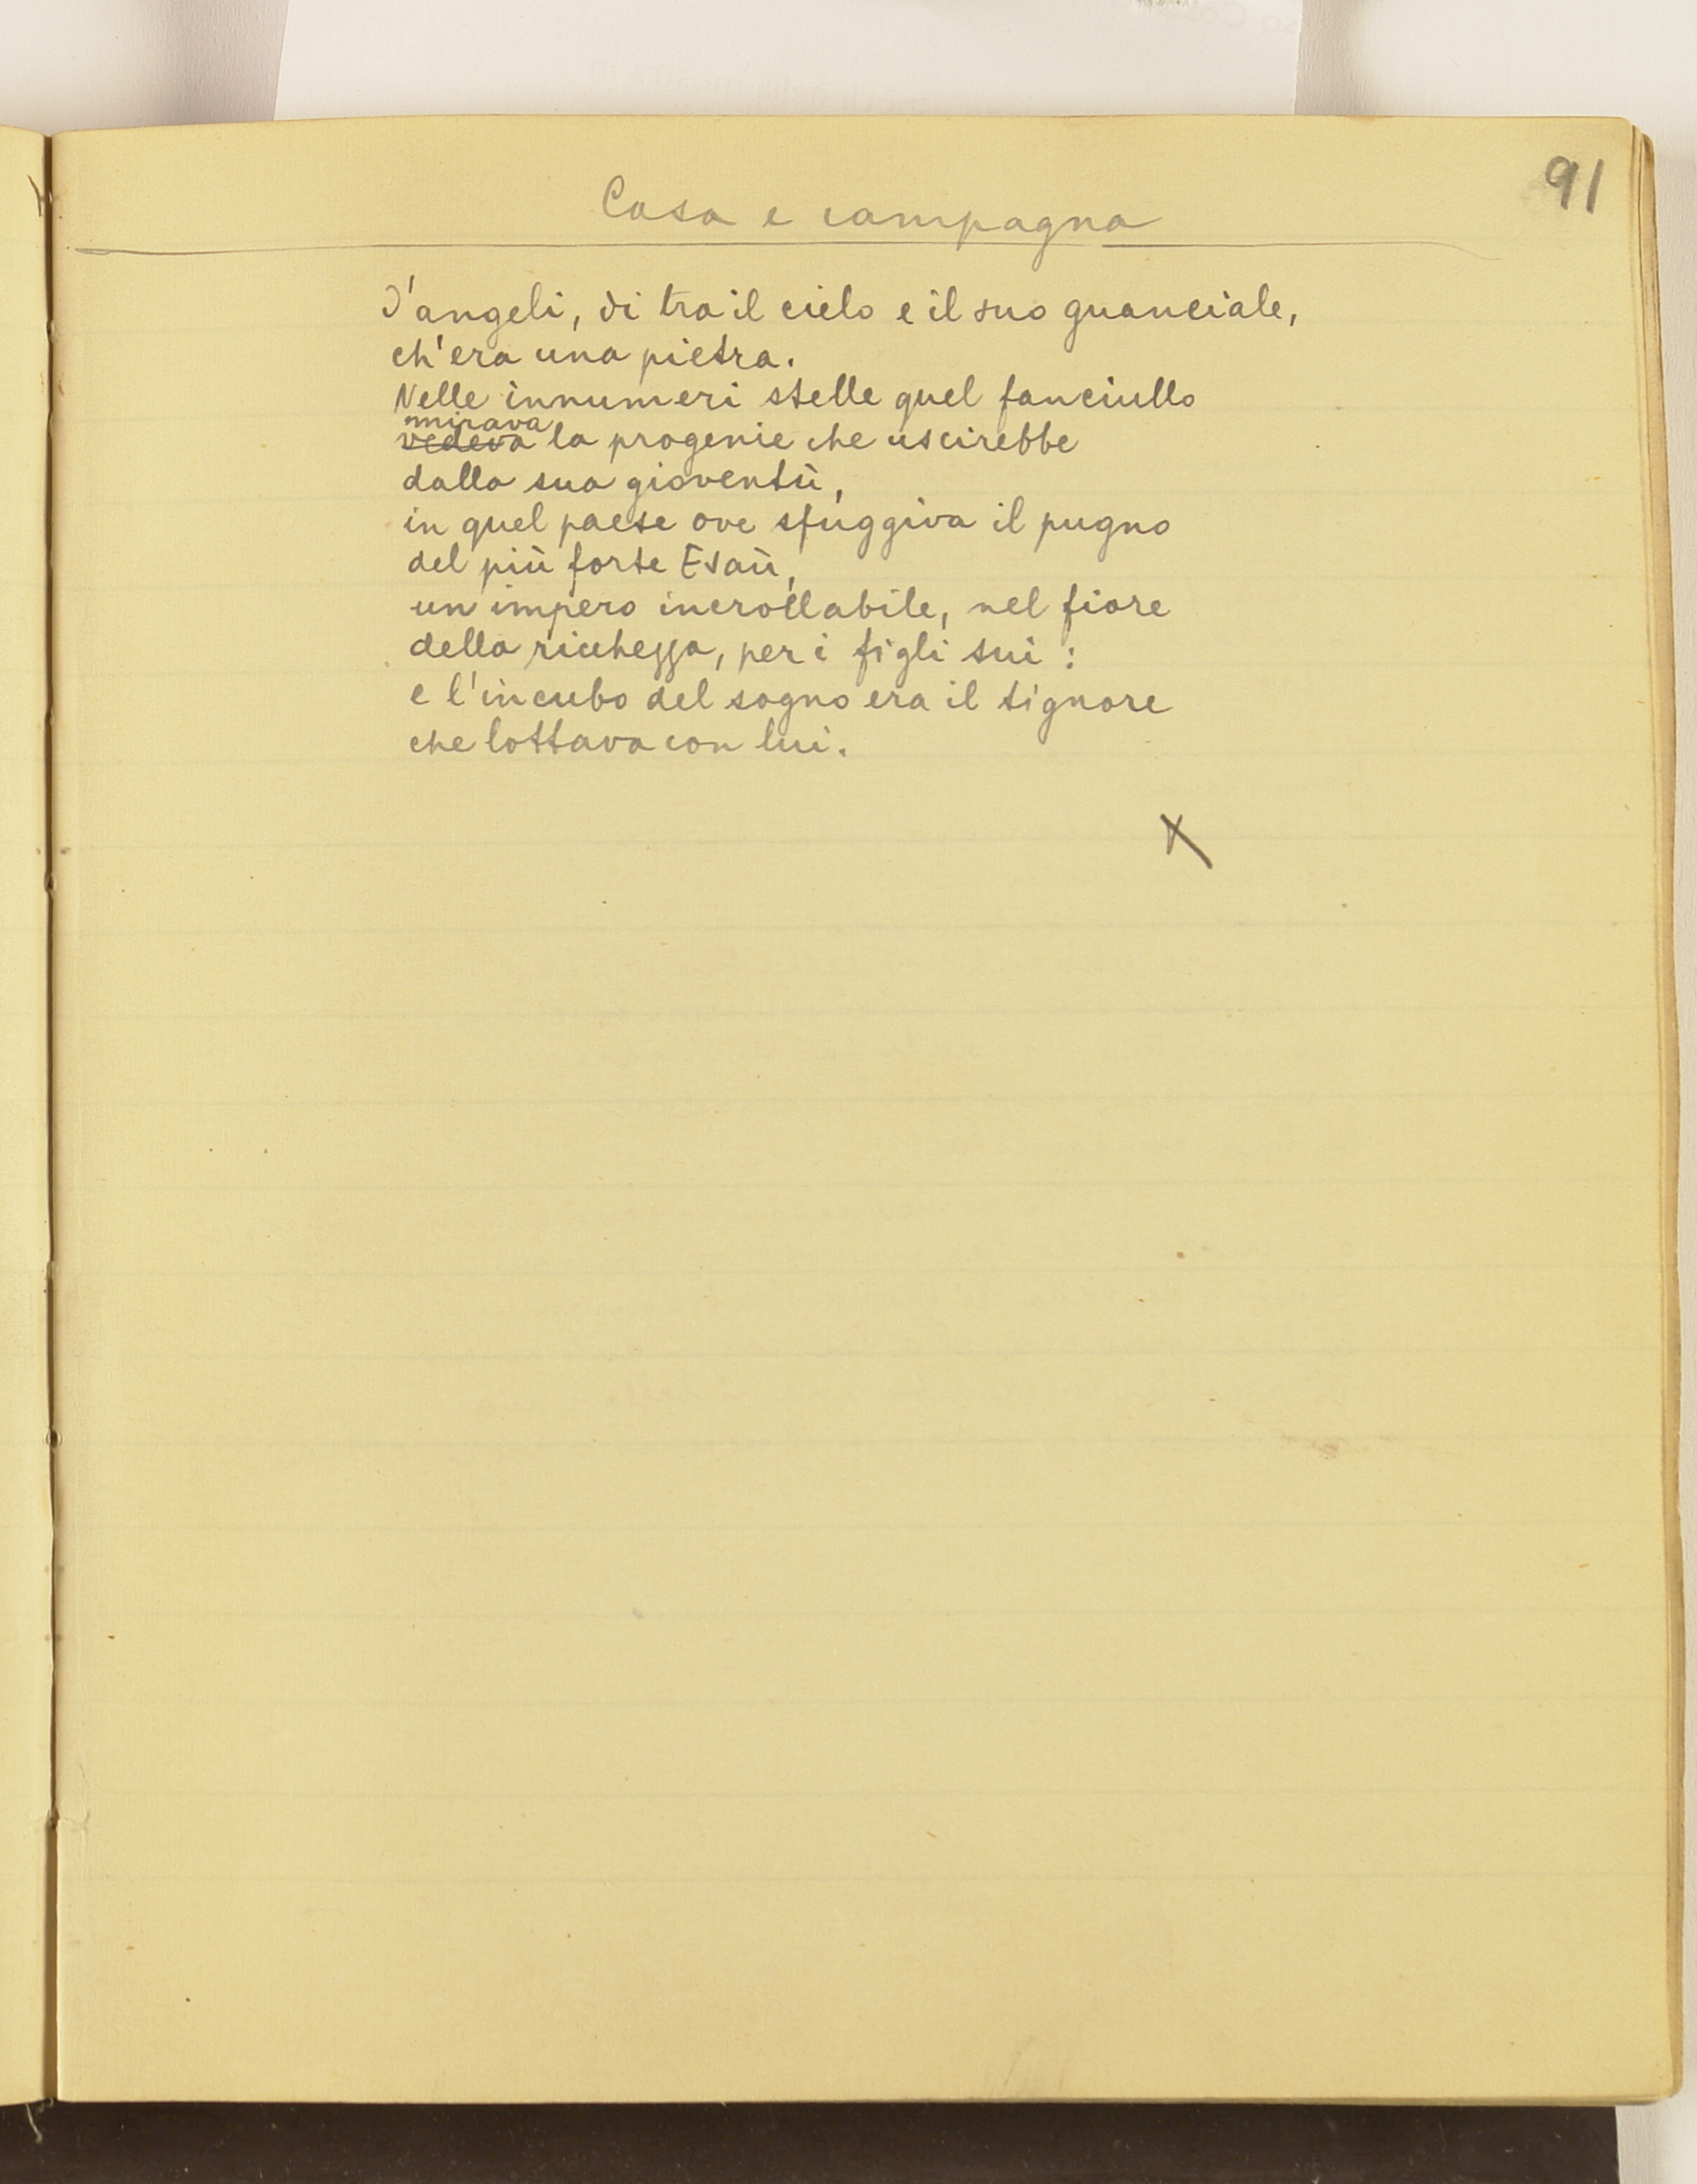 91
Casa e campagna
D'angeli, di tra il cielo e il suo guanciale,
ch'era una pietra.
Nelle innumeri stelle quel fanciullo
mirava
vedeva la progenie che uscirebbe
dalla sua gioventù,
in quel paese ove sfuggiva il pugno
del più forte Esaù,
un impero incrollabile, nel fiore
della ricchezza, per i figli sui:
e l'incubo del sogno era il signore
che lottava con lui.
X